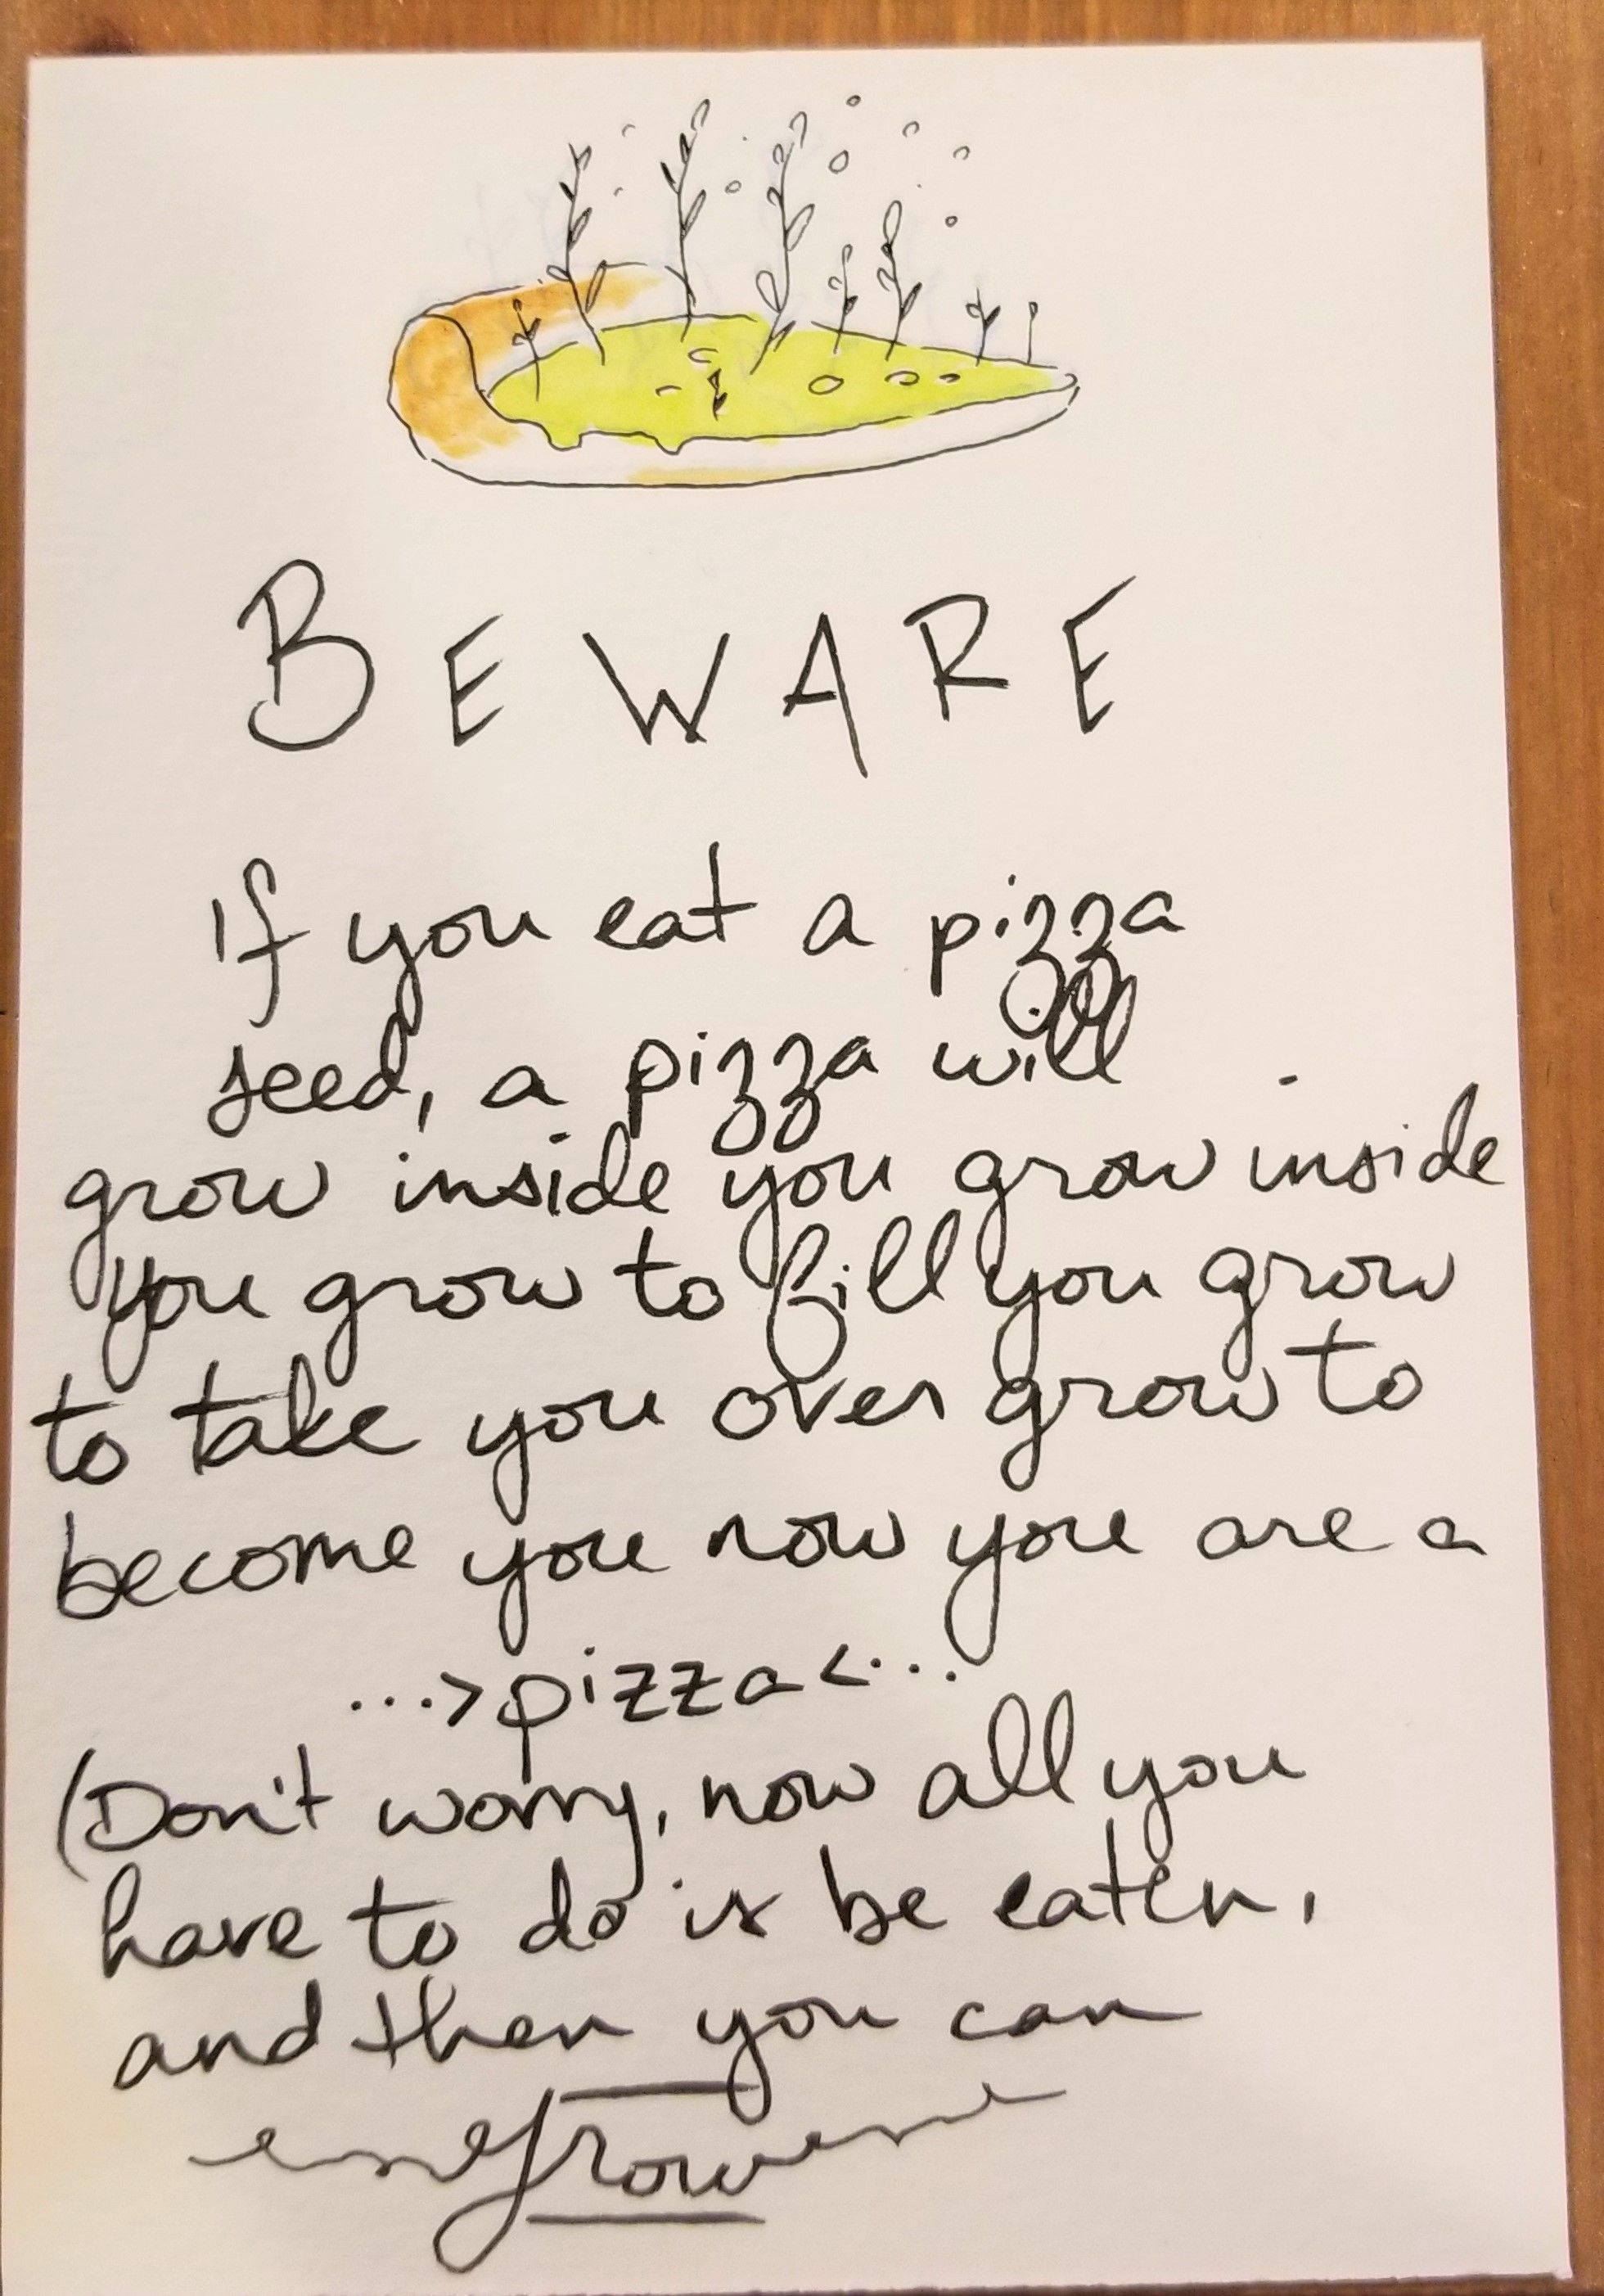 BEWARE
If you eat a pizza
seed, a pizza will
grow inside you grow inside
you grow to fill you grow
to take you over grow to
become you now you are a
...>pizza<...
(Don't worry, now all you
have to do is be eaten,
and then you can
grow